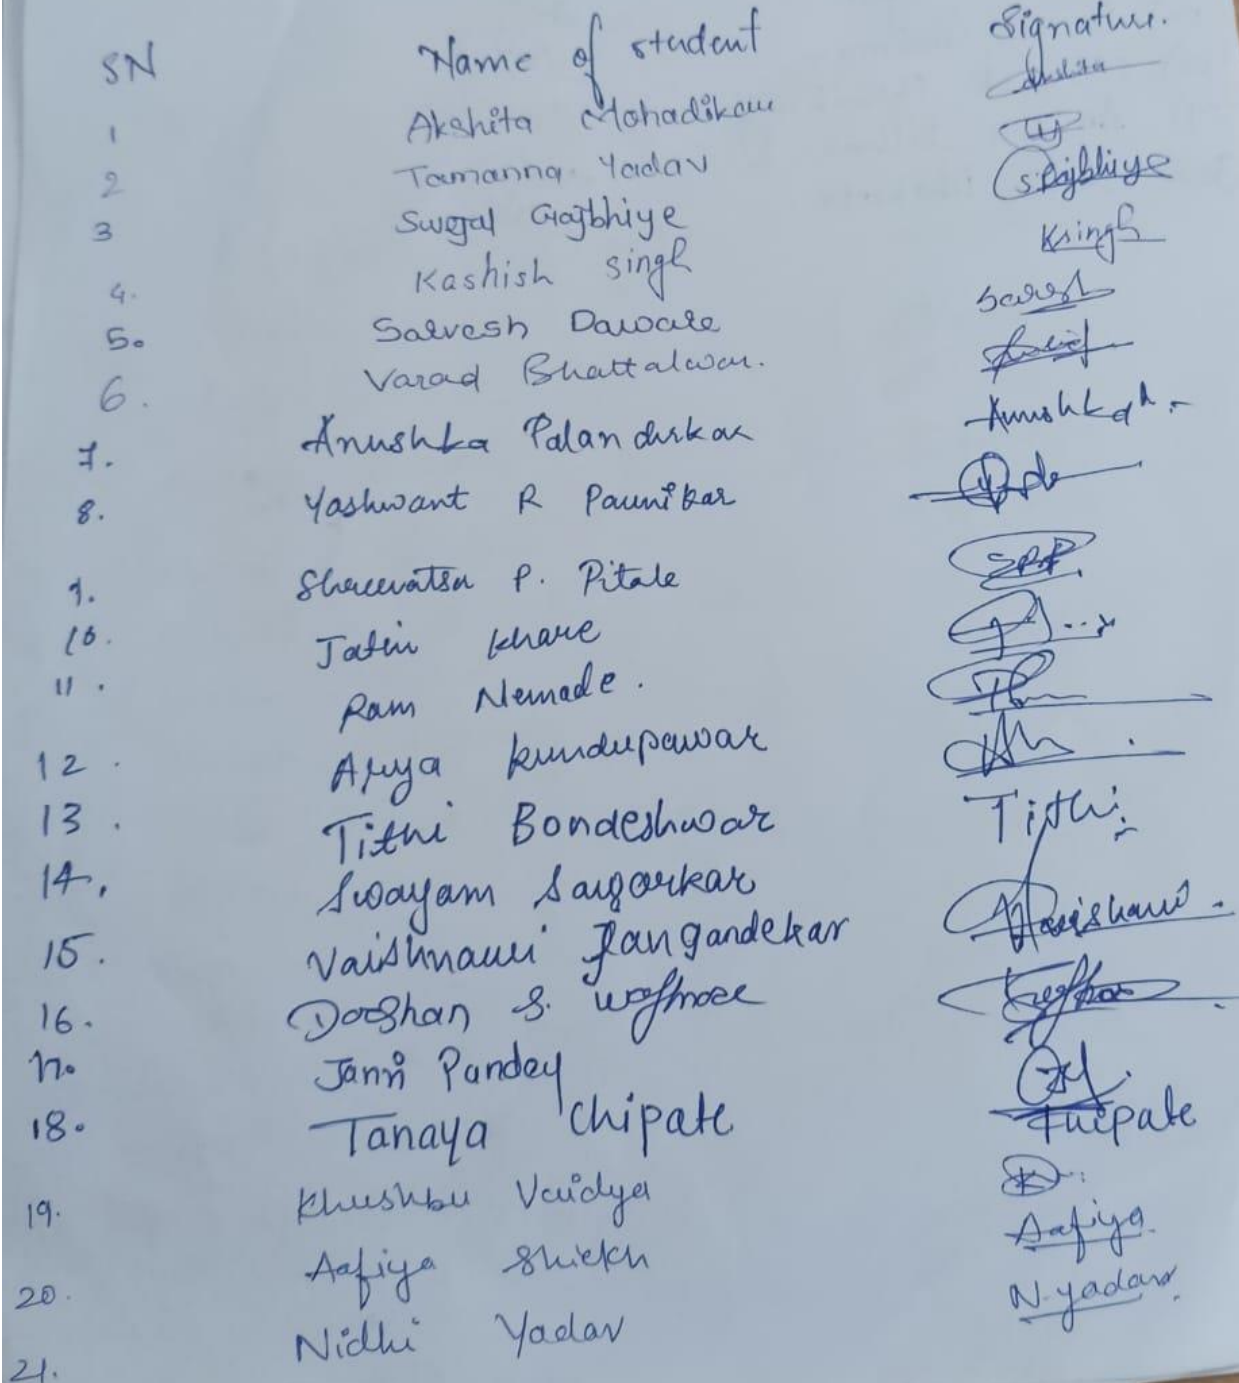 SN Name of student Signature.
1 Akshita Mohadikar Akshita
2 Tamanna Yadav
3 Swejal Gajbhiye S.Gajbhiye
4. Kashish Singh Ksingh
5. Sarvesh Daware Sarvesh
6. Varad Bhattalwar.
7. Anushka Palandurkar Anushka
8. Yashwant R Paunikar
9. Shreevatsa P. Pitale SPP
10. Jatin Khare
11. Ram Nemade.
12. Arya Kundupawar
13. Tithi Bondeshwar Tithi.
14. Swayam Saigarkar
15. Vaishnavi Rangandekar Vaishnavi.
16. Darshan S. Waghmare
17. Janvi Pandey
18. Tanaya Chipate Tchipate
19. Khushbu Vaidya
20. Aafiya Shiekh Aafiya
21. Nidhi Yadav N.yadav